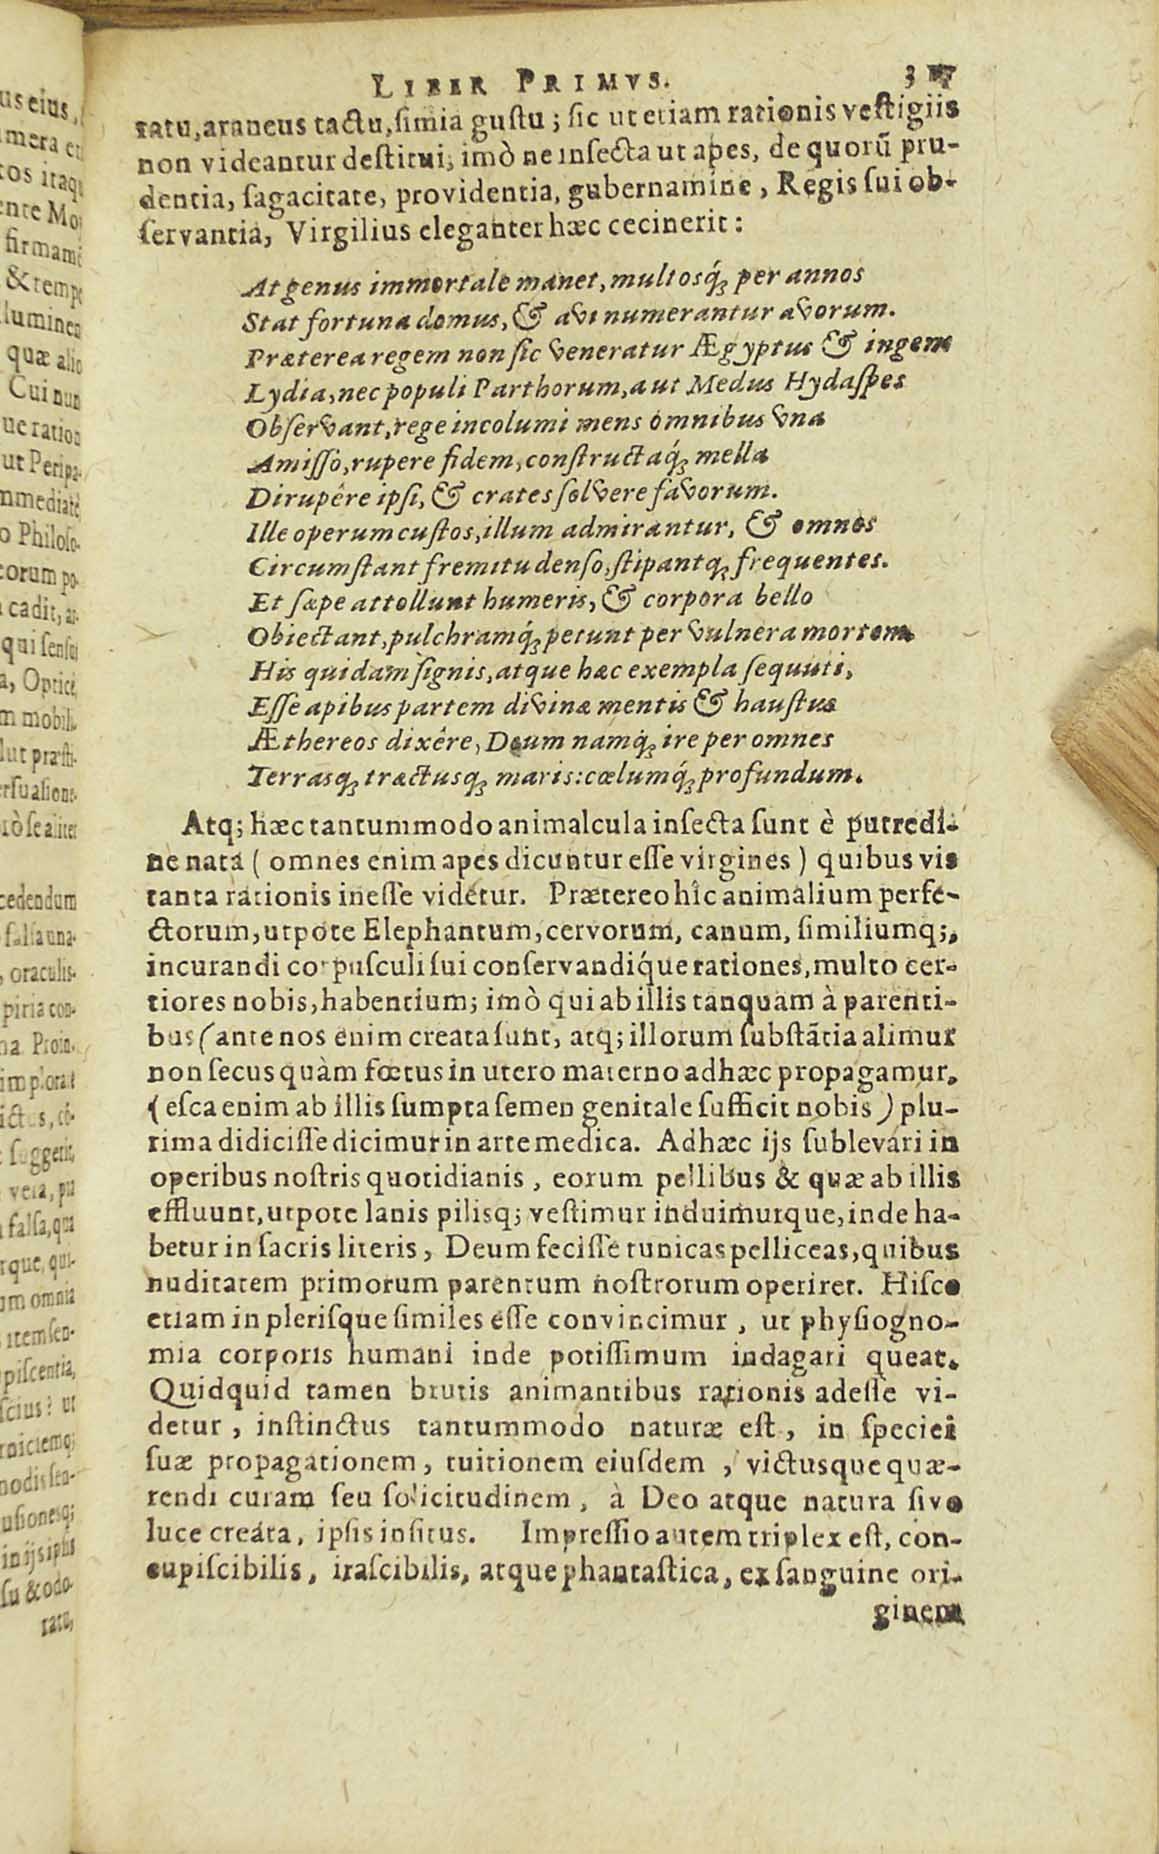 LIBER PRIMVS.
ratu, araneus tactu, simia gustu; sic ut etiam rationis vestigiis
non videantur destitui, imò ne insecta ut apes, de quorũ pru-
dentia, sagacitate, providentia, gubernamine, Regis sui ob-
servantia, Virgilius eleganter hæc cecinerit:
At genus immortale manet, multosq́; per annos
Stat fortuna domus, & avi numerantur avorum.
Præterea regem non sic veneratur Ægyptus & ingens
Lydia, nec populi Parthorum, aut Medus Hydaspes
Observant, rege incolumi mens omnibus vna
Amisso, rupere fidem, constructaq́; mella
Dirupêre ipsi, & crates solvere favorum.
Ille operum custos, illum admirantur, & omnes
Circumstant fremitu denso, stipantq; frequentes.
Et sæpe attollunt humeris, & corpora bello
Obiectant, pulchramq́; petunt per vulnera mortem.
His quidam signis, atque hæc exempla sequuti,
Esse apibus partem divinæ mentis & haustus
Æthereos dixêre, Deum namq́; ire per omnes
Terrasq; tractusq; maris: cœlumq́; profundum.
Atq; hæc tantummodo animalcula insecta sunt è putredi-
ne nata (omnes enim apes dicuntur esse virgines) quibus vis
tanta rationis inesse videtur. Prætereo hîc animalium perfe-
ctorum, utpote Elephantum, cervorum, canum, similiumq;,
in curandi corpusculi sui conservandiq́ue rationes, multo cer-
tiores nobis, habentium; imò qui ab illis tanquam à parenti-
bus (ante nos enim creata sunt, atq; illorum substãtia alimur
non secus quàm fœtus in utero materno adhæc propagamur,
(esca enim ab illis sumpta semen genitale sufficit nobis) plu-
rima didicisse dicimur in arte medica. Adhæc ijs sublevari in
operibus nostris quotidianis, eorum pellibus & quæ ab illis
effluunt, utpote lanis pilisq; vestimur induimurque, inde ha-
betur in sacris literis, Deum fecisse tunicas pelliceas, quibus
nuditatem primorum parentum nostrorum operiret. Hisce
etiam in plerisque similes esse convincimur, ut physiogno-
mia corporis humani inde potissimum indagari queat.
Quidquid tamen brutis animantibus rationis adesse vi-
detur, instinctus tantummodo naturæ est, in speciei
suæ propagationem, tuitionem eiusdem, victusque quæ-
rendi curam seu solicitudinem, à Deo atque natura sive
luce creata, ipsis insitus. Impressio autem triplex est, con-
cupiscibilis, irascibilis, atque phantastica, ex sanguine ori-
ginem